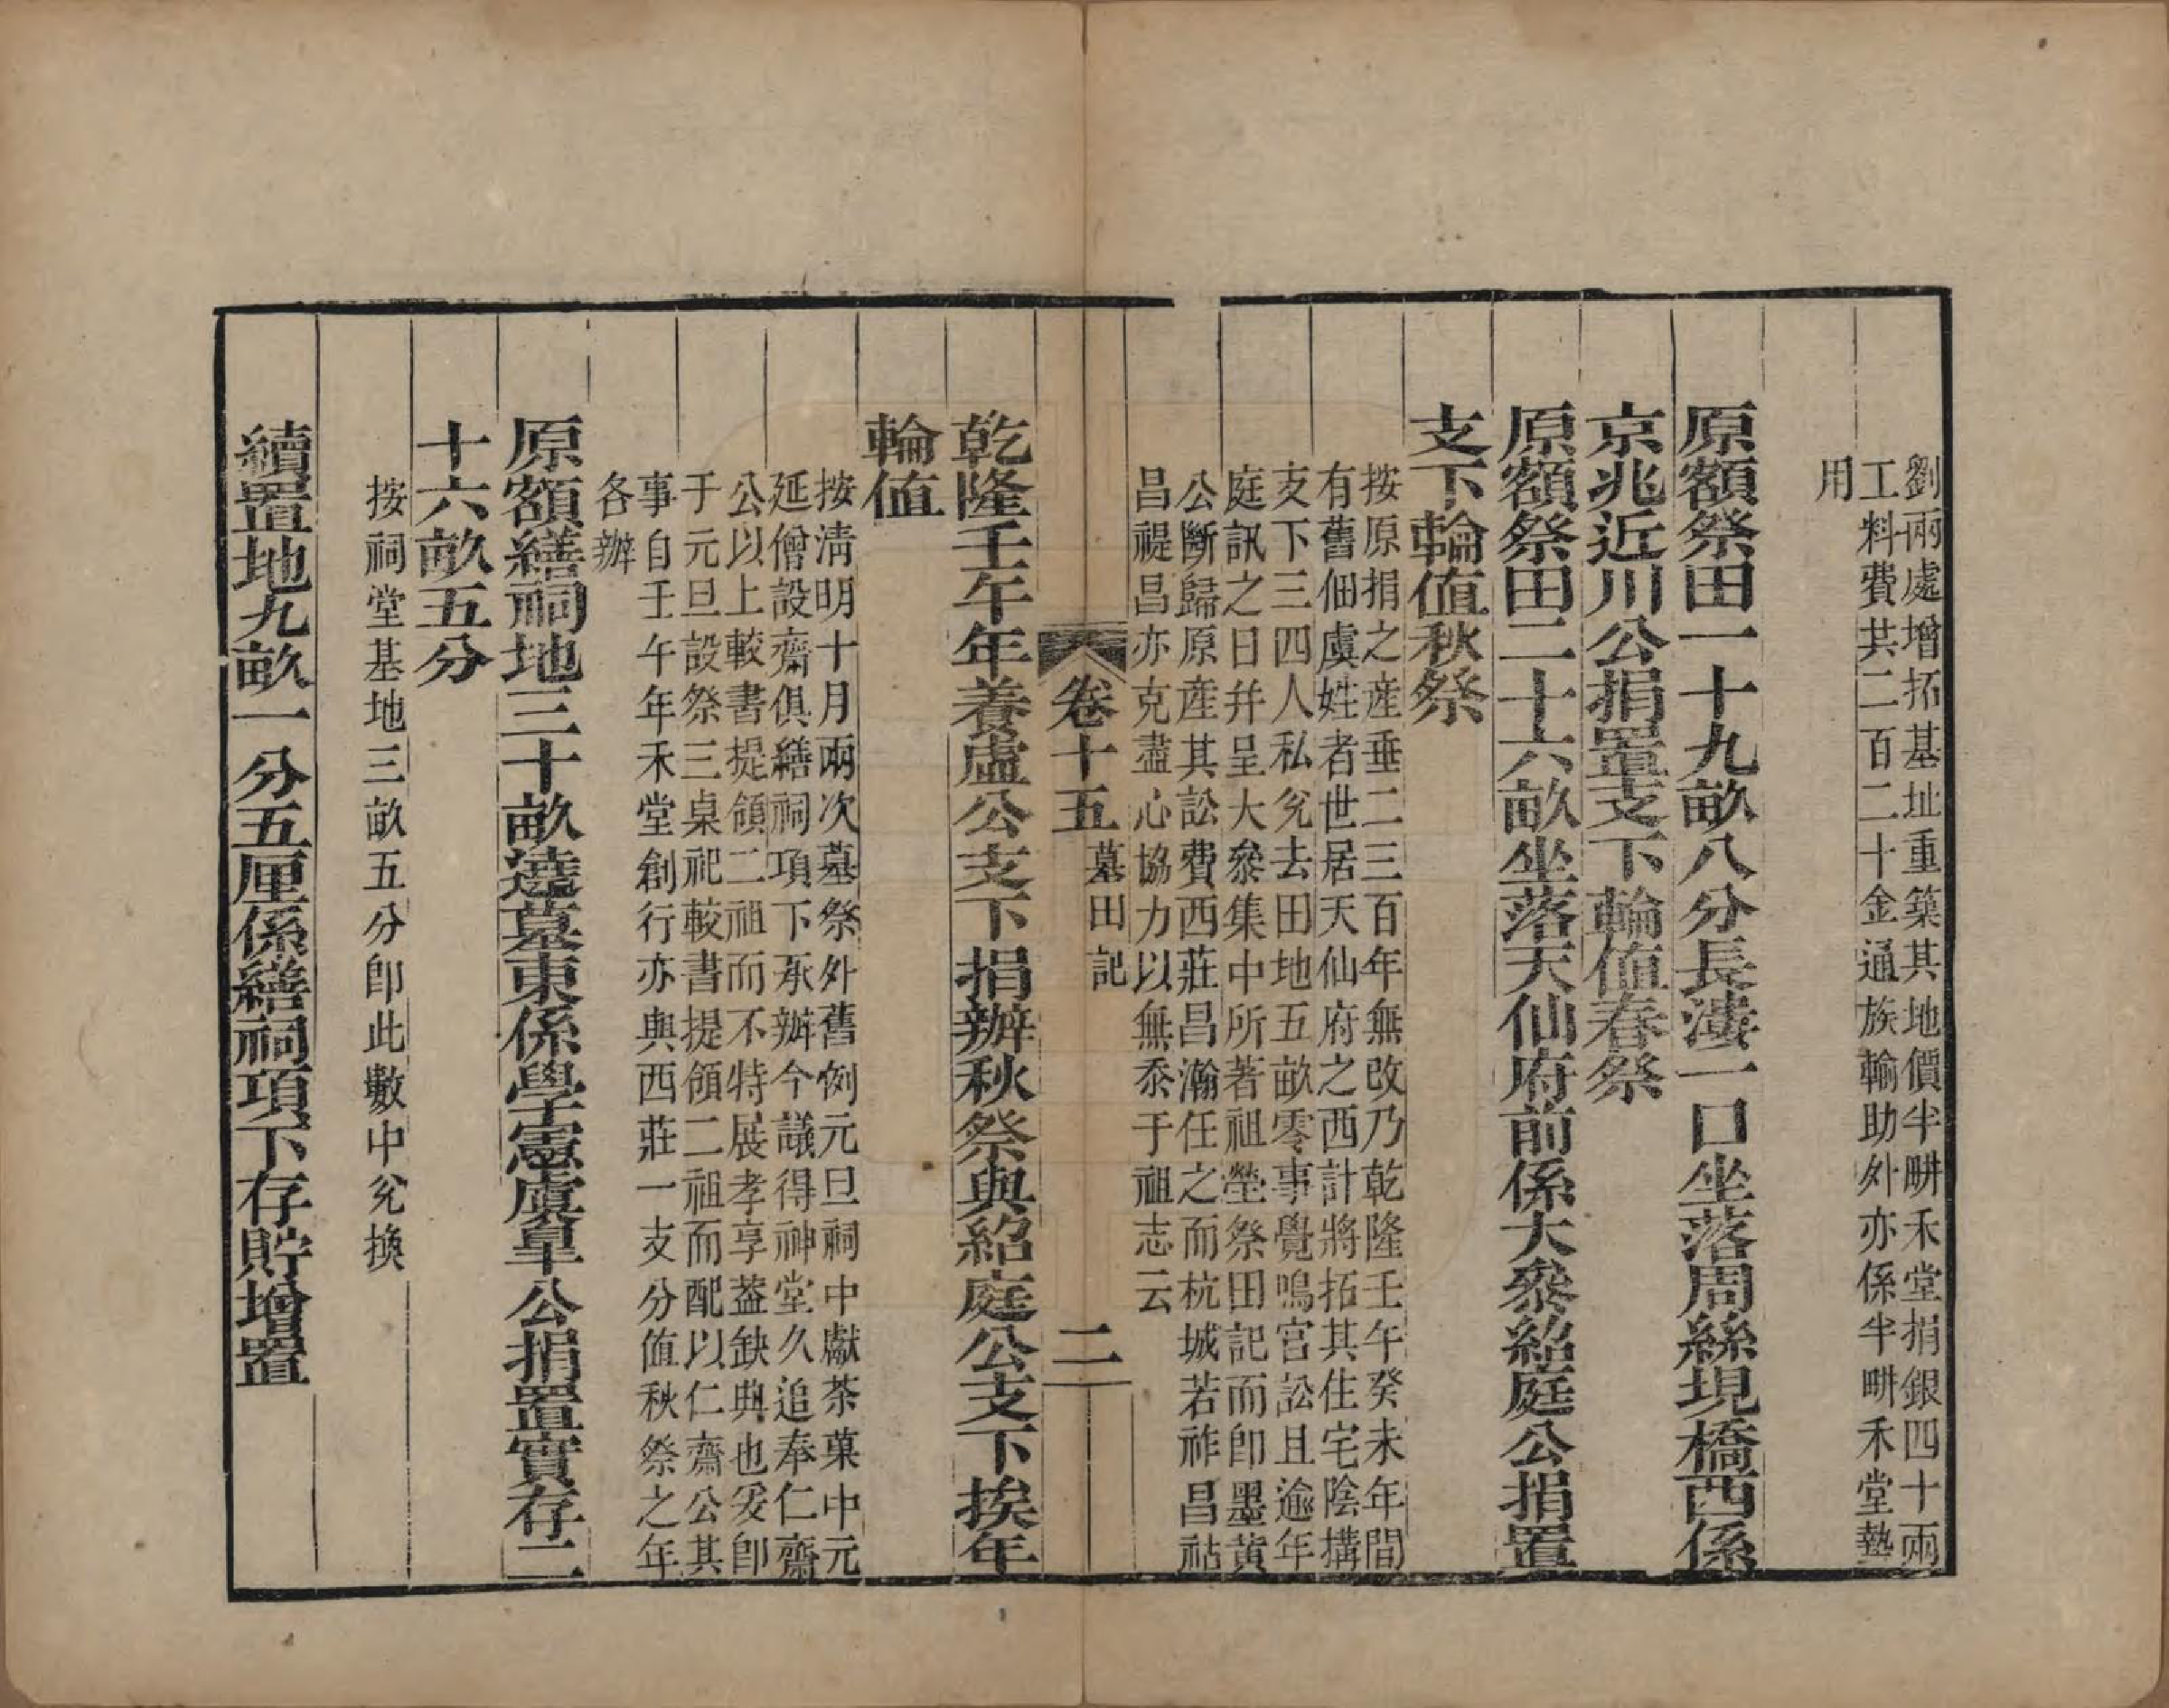 劉兩處增拓基址重築其地價半畊禾堂捐銀四十兩
工料費共二百二十金通族輸助外亦係半畊禾堂墊
用
原額祭田一十九畝八分長漊一口坐落周絲垷橋西係
京兆近川公捐置支下輪值春祭
原額祭田二十六畝坐落天仙府前係大叅紹庭公捐置
支下輪值秋祭
按原捐之産垂二三百年無改乃乾隆壬午癸未年間
有舊佃虞姓者世居天仙府之西計將拓其住宅陰搆
支下三四人私兊去田地五畝零事覺鳴官訟且逾年
庭訊之日幷呈大叅集中所著祖塋祭田記而卽墨黄
公斷歸原産其訟費西莊昌瀚任之而杭城若祚昌祜
昌禔昌亦克盡心協力以無忝于祖志云
卷十五 墓田記 二
乾隆壬午年養盧公支下捐辦秋祭與紹庭公支下挨年
輪值
按淸明十月兩次墓祭外舊例元旦祠中獻茶菓中元
延僧設齋俱繕祠項下承辦今議得神堂久追奉仁齋
公以上較書提領二祖而不特展孝享葢缺典也爰卽
于元旦設祭三桌祀較書提領二祖而配以仁齋公其
事自壬午年禾堂創行亦與西莊一支分值秋祭之年
各辦
原額繕祠地三十畝遶墓東係學憲虞臯公捐置實存二
十六畝五分
按祠堂基地三畝五分卽此數中兊換
續置地九畝一分五厘係繕祠項下存貯增置